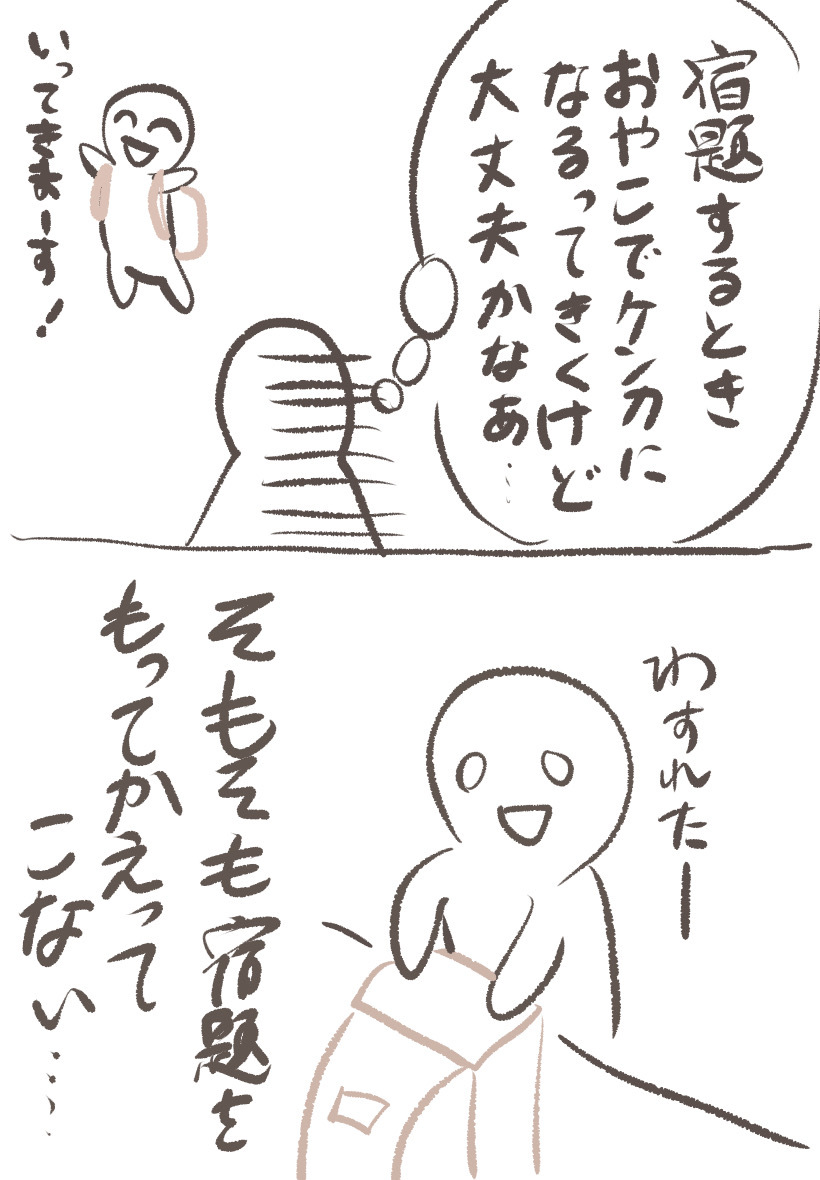 宿題するとき
おやこでケンカに
なるってきくけど
大丈夫かなあ…
いってきまーす!
わすれたー
そもそも宿題を
もってかえって
こない……